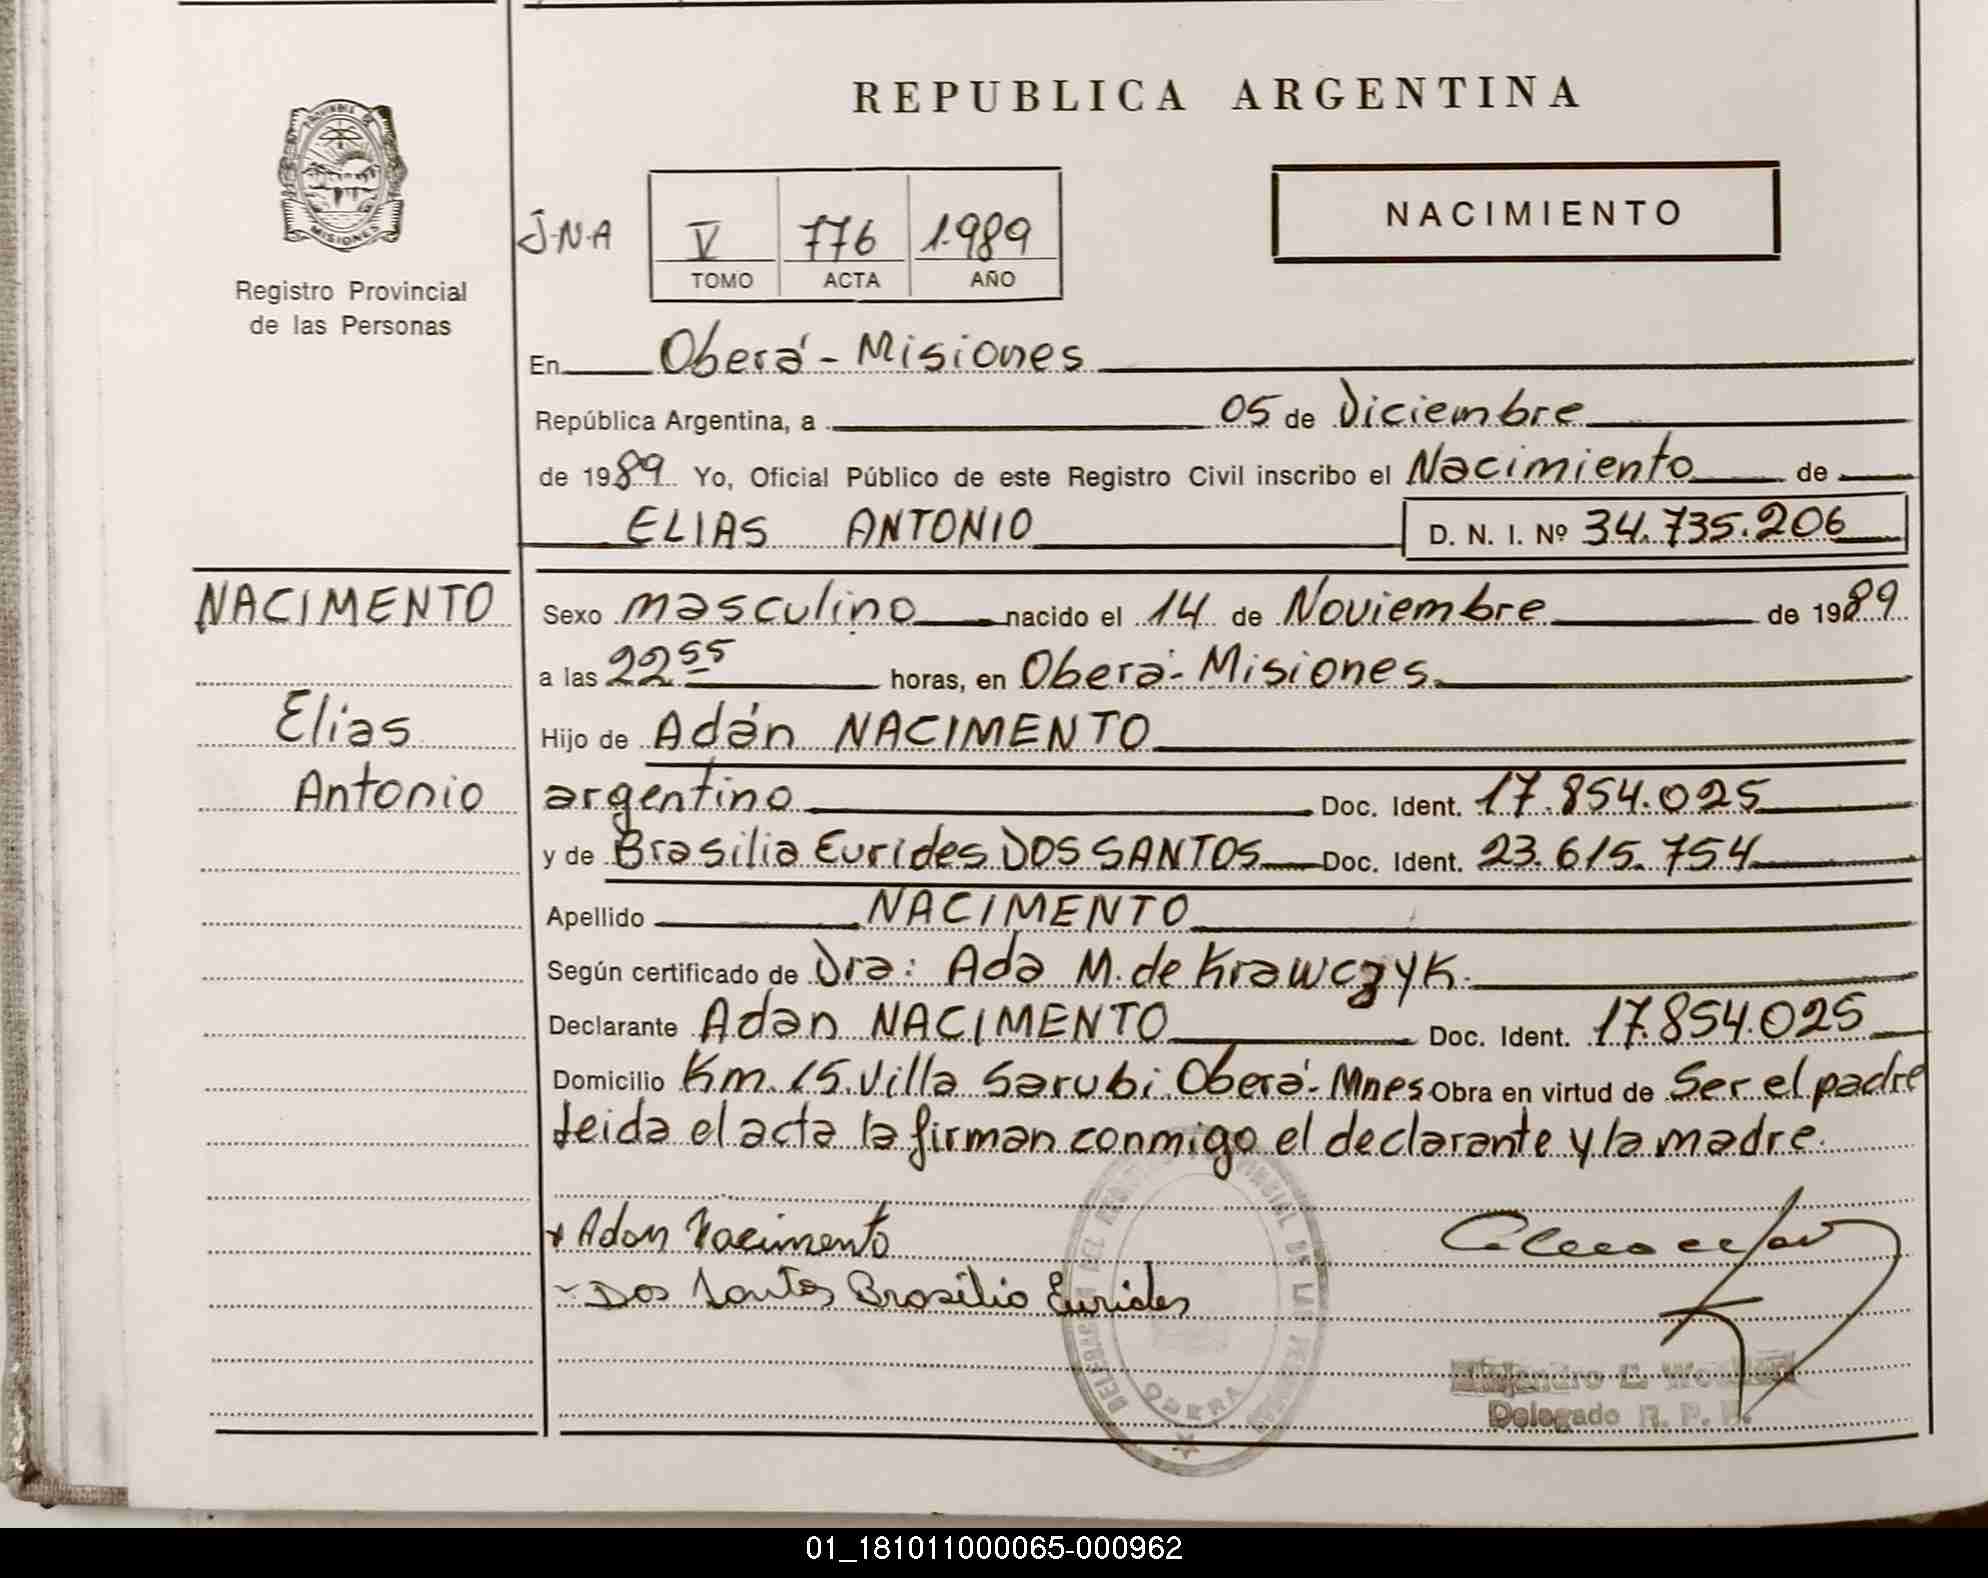 REPUBLICA ARGENTINA
PROVINCIA DE
MISIONES
Registro Provincial
de las Personas
J.N.A
V 776 1.989
TOMO ACTA AÑO
NACIMIENTO
En Oberá - Misiones
República Argentina, a 05 de Diciembre
de 1989 Yo, Oficial Público de este Registro Civil inscribo el Nacimiento de
ELIAS ANTONIO D. N. I. Nº 34.735.206
NACIMENTO
Elias
Antonio
Sexo masculino nacido el 14 de Noviembre de 1989
a las 22 55 horas, en Oberá - Misiones.
Hijo de Adán NACIMENTO
argentino Doc. Ident. 17.854.025
y de Brasilia Eurides DOS SANTOS Doc. Ident. 23.615.754
Apellido NACIMENTO
Según certificado de Dra: Ada M. de Krawczyk.
Declarante Adan NACIMENTO Doc. Ident. 17.854.025
Domicilio Km. 15. Villa Sarubi. Oberá - Mnes Obra en virtud de Ser el padre
Leida el acta la firman conmigo el declarante y la madre.
x Adan Nacimento
- Dos Santos Brasilia Eurides
OBERA
Delegado R. P. P.
01_181011000065-000962